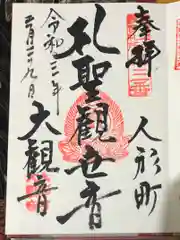 奉拝
人形町
礼聖觀世音
令和三年
五月二十九日
大觀音